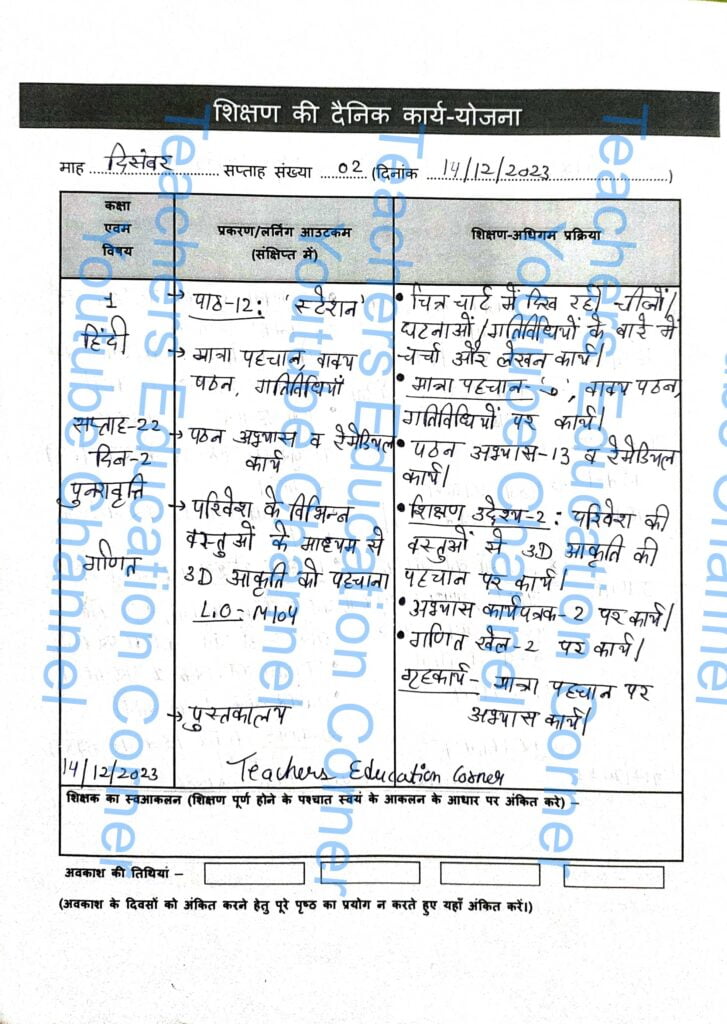 शिक्षण की दैनिक कार्य-योजना
माह दिसंबर सप्ताह संख्या 02 (दिनांक 14/12/2023)
कक्षा
एवम
विषय
प्रकरण/लर्निंग आउटकम
(संक्षिप्त में)
शिक्षण-अधिगम प्रक्रिया
1
हिंदी
सप्ताह-22
दिन-2
पुनरावृत्ति
गणित
14/12/2023
→ पाठ-12: 'स्टेशन'
→ मात्रा पहचान, वाक्य
पठन, गतिविधियाँ
→ पठन अभ्यास व रेमेडियल
कार्य
→ परिवेश के विभिन्न
वस्तुओं के माध्यम से
3D आकृति को पहचाना
L.O:- M104
→ पुस्तकालय
• चित्र चार्ट में दिख रही चीजों/
घटनाओं/गतिविधियों के बारे में
चर्चा और लेखन कार्य।
• मात्रा पहचान- , वाक्य पठन,
गतिविधियों पर कार्य।
• पठन अभ्यास-13 व रेमेडियल
कार्य।
• शिक्षण उद्देश्य-2: परिवेश की
वस्तुओं से 3D आकृति की
पहचान पर कार्य।
• अभ्यास कार्यपत्रक-2 पर कार्य।
• गणित खेल-2 पर कार्य।
गृहकार्य- मात्रा पहचान पर
अभ्यास कार्य।
Teachers Education Corner
शिक्षक का स्वआकलन (शिक्षण पूर्ण होने के पश्चात स्वयं के आकलन के आधार पर अंकित करे) –
अवकाश की तिथियां –
(अवकाश के दिवसों को अंकित करने हेतु पूरे पृष्ठ का प्रयोग न करते हुए यहाँ अंकित करें।)
Teachers Education Corner
Youtube Channel
Teachers Education Corner
Youtube Channel
Teachers Education Corner
Youtube Channel